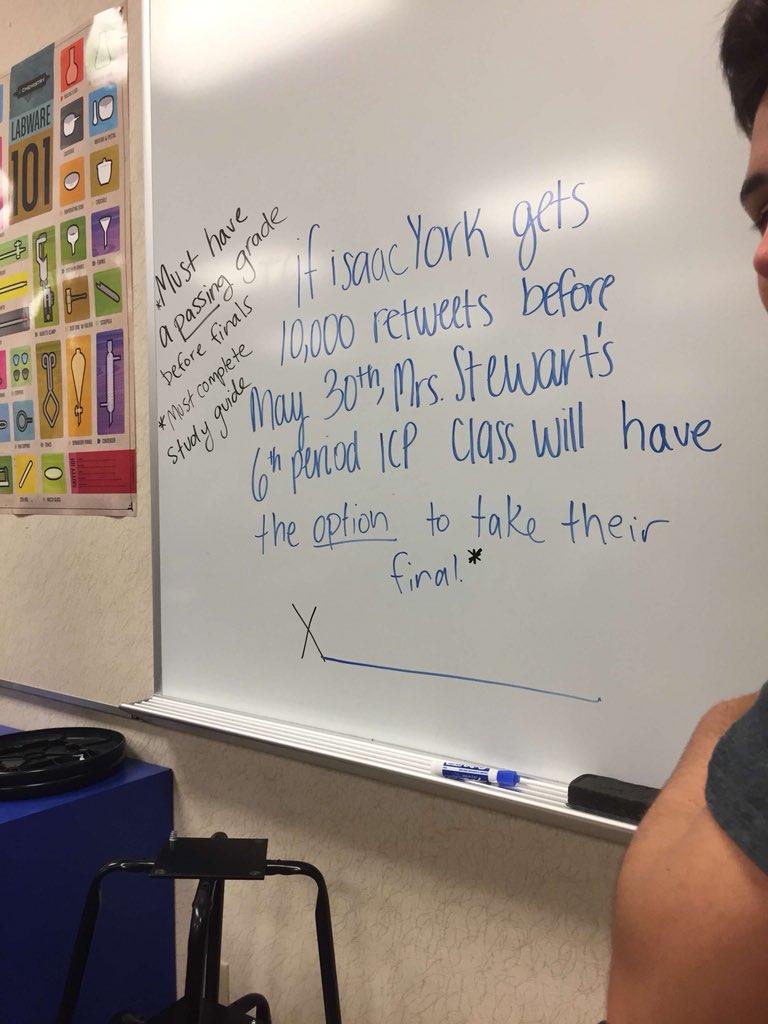 CHEMISTRY
LABWARE
101
*Must have
a passing grade
before finals
*Must complete
study guide
if isaac York gets
10,000 retweets before
May 30th, Mrs. Stewart's
6th period ICP class will have
the option to take their
final.*
X